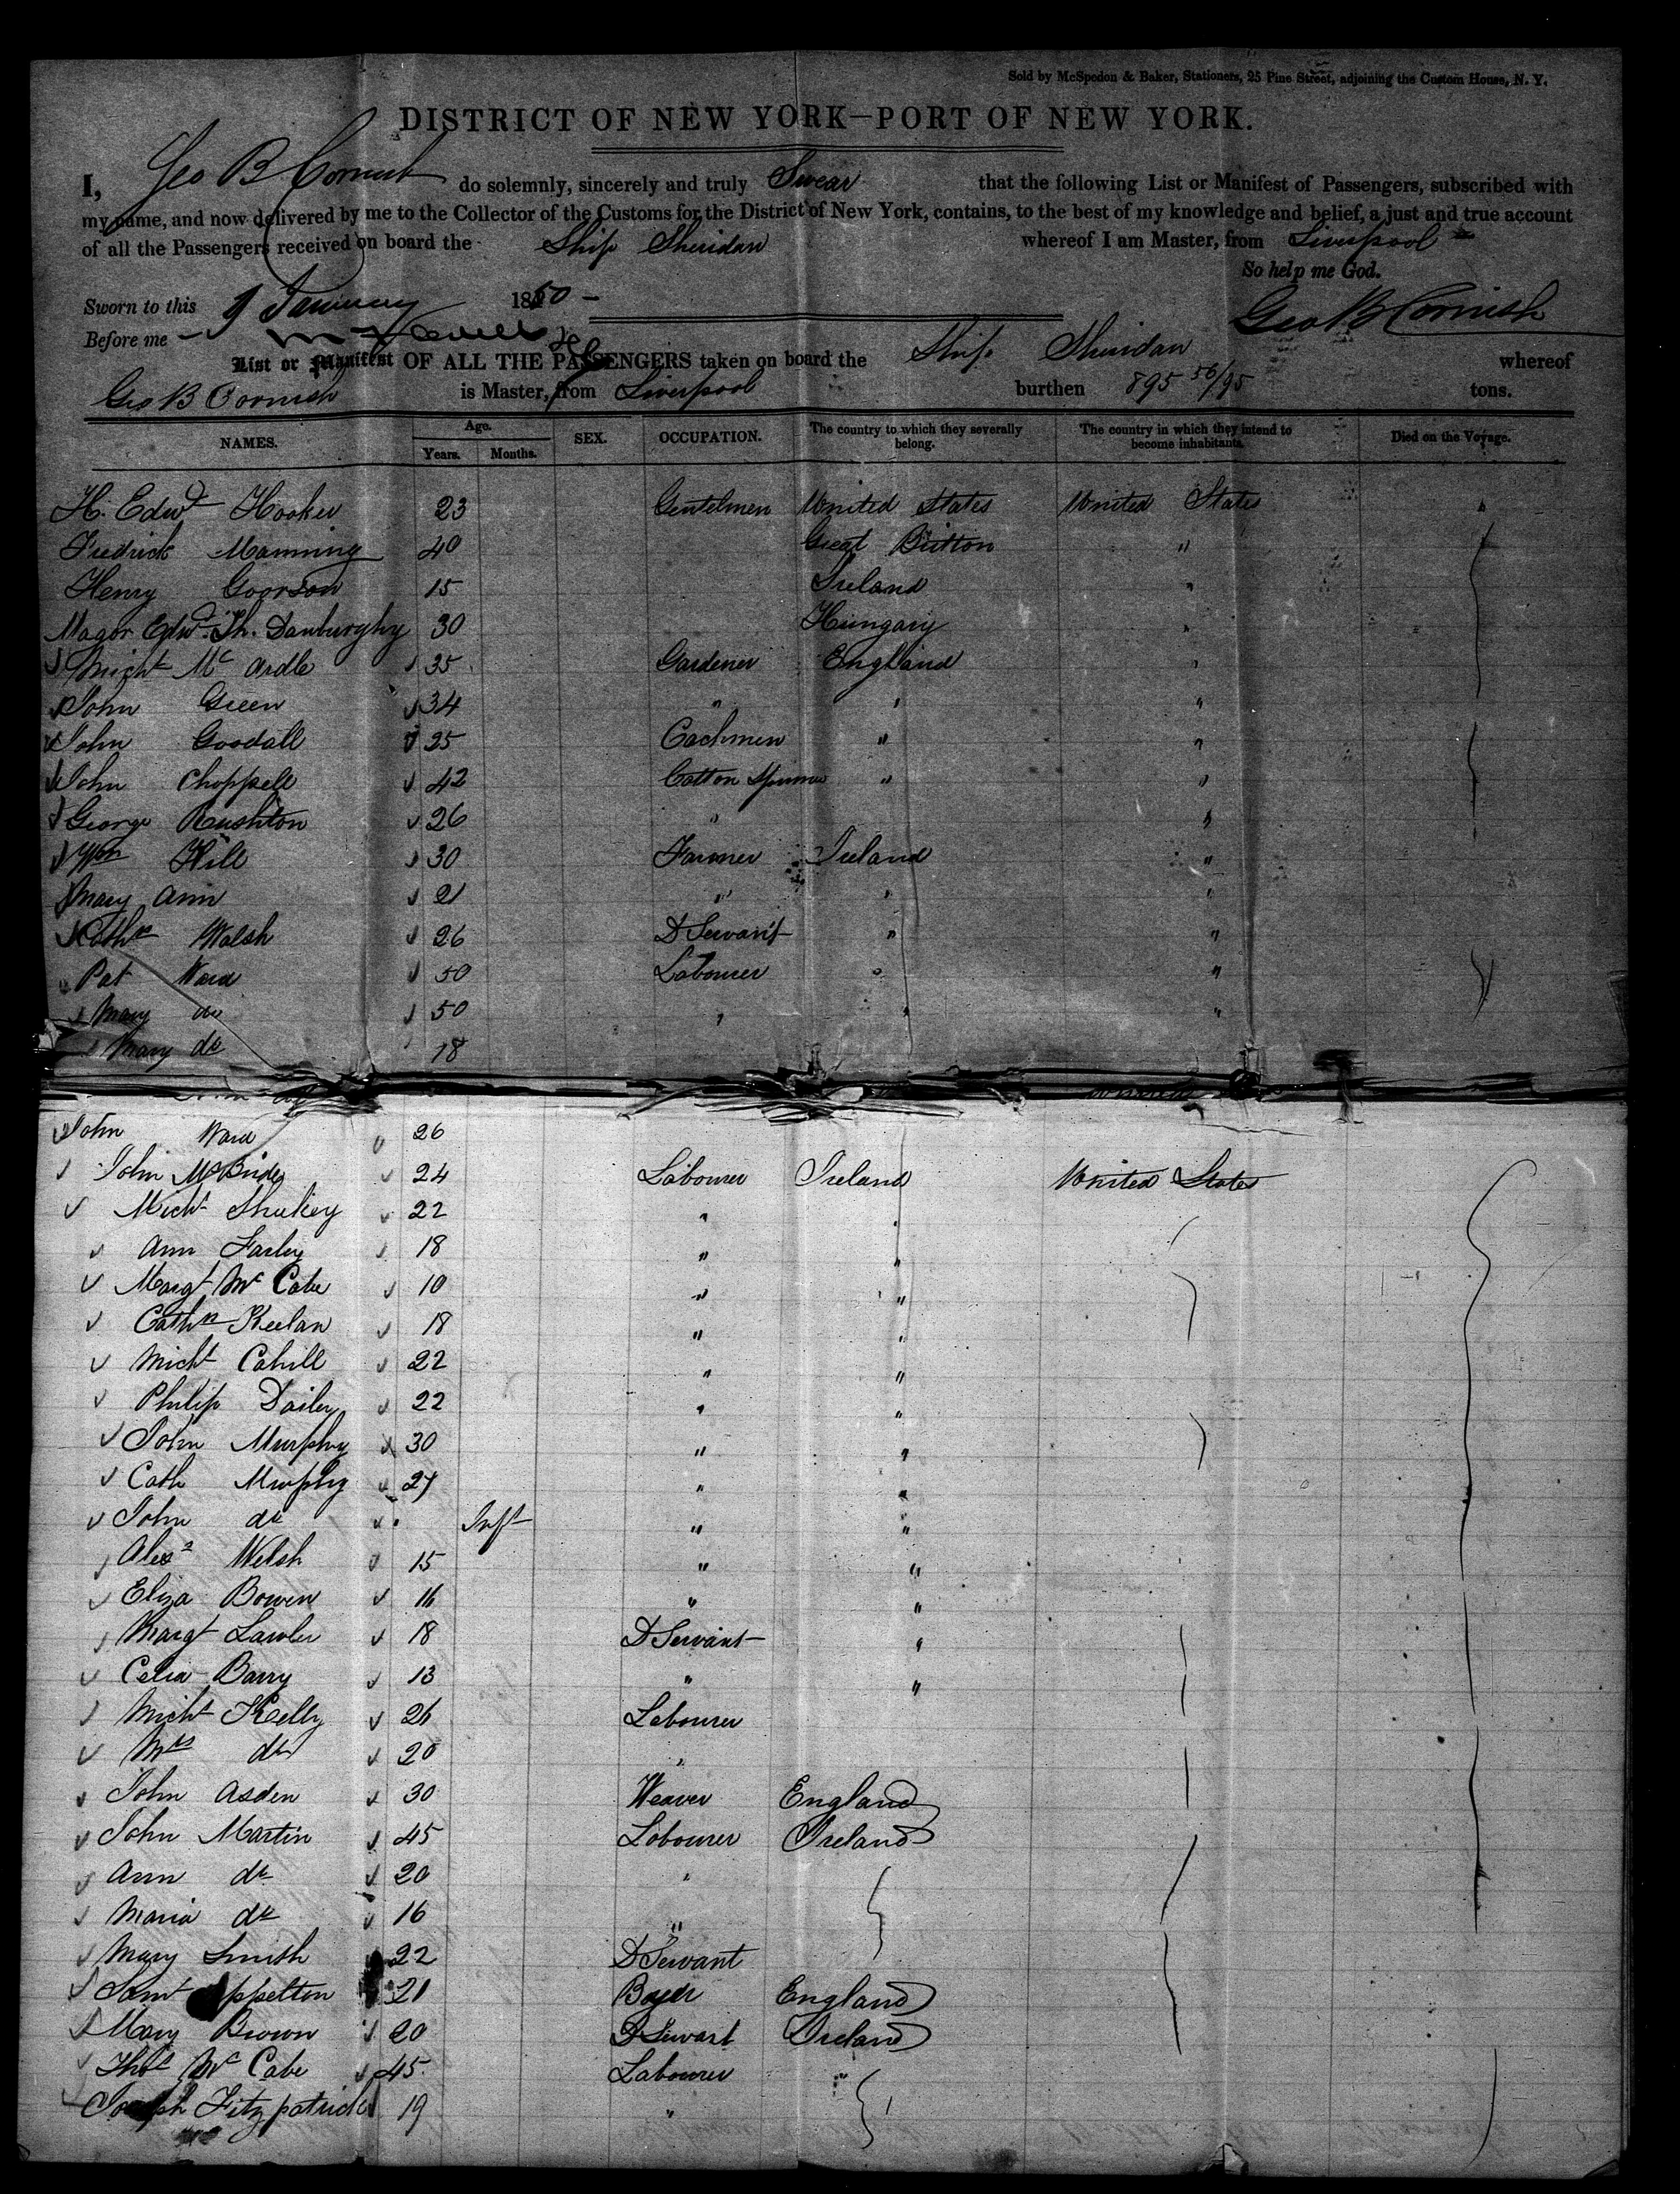 Sold by McSpedon & Baker, Stationers, 25 Pine Street, adjoining the Custom House, N. Y.
DISTRICT OF NEW YORK—PORT OF NEW YORK.
I, Geo B Cornish do solemnly, sincerely and truly Swear that the following List or Manifest of Passengers, subscribed with
my name, and now delivered by me to the Collector of the Customs for the District of New York, contains, to the best of my knowledge and belief, a just and true account
of all the Passengers received on board the Ship Sheridan whereof I am Master, from Liverpool
So help me God.
Sworn to this 9 January 1850
Geo B Cornish
Before me
List or Manifest OF ALL THE PASSENGERS taken on board the Ship Sheridan whereof
Geo B Cornish is Master, from Liverpool burthen 895 56/95 tons.
NAMES. Age. Years. Months. SEX. OCCUPATION. The country to which they severally belong. The country in which they intend to become inhabitants. Died on the Voyage.
H. Edwd Hooker 23 Gentelmen United States United States
Fredrick Manning 40 Great Britton "
Henry Goorson 15 Ireland "
Magor Edwd Th. Danburghy 30 Hungary "
Micht Mc Ardle 35 Gardener England "
John Green 34 " " "
John Goodall 25 Cachmen " "
John Choppell 42 Cotton Spinner " "
George Rushton 26 " "
Wm Hill 30 Farmer Ireland "
Mary Ann 21 " " "
Cathn Walsh 26 D Servant " "
Pat Ward 50 Labourer " "
Mary do 50 " " "
Mary do 18
John Ward 26
John McBride 24 Labourer Ireland United States
Micht Shukey 22 " "
Ann Farley 18 " "
Margt Mc Cabe 10 " "
Cathn Keelan 18 " "
Micht Cahill 22 " "
Philip Dailey 22 " "
John Murphy 30 " "
Cath Murphy 27 " "
John do Inft " "
Alexr Welsh 15 " "
Eliza Bowen 16 " "
Margt Lawler 18 D Servant "
Celia Barry 13 " "
Micht Kelly 26 Labourer
Mrs do 20 "
John Asden 30 Weaver England
John Martin 45 Labourer Ireland
Ann do 20 "
Maria do 16 "
Mary Smith 22 D Servant
Saml Appelton 21 England
Mary Brown 20 D Servant Ireland
Thos Mc Cabe 45 Labourer "
Joseph Fitzpatrick 19 "